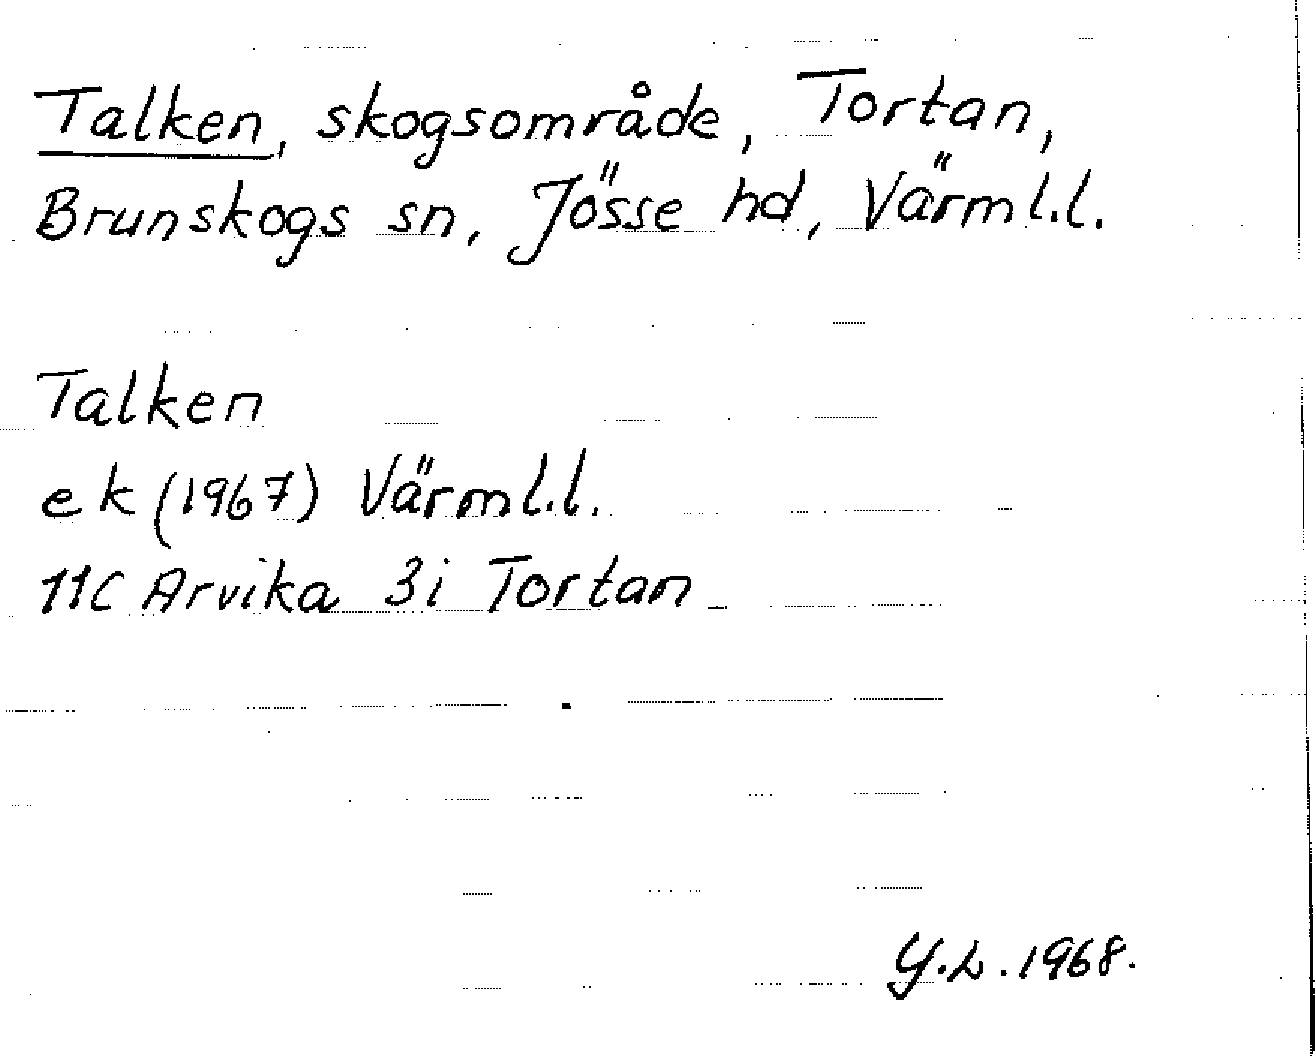 Talken, skogsområde, Tortan,
Brunskogs sn, Jösse hd, Värml.l.
Talken
ek (1967) Värml.l.
11C Arvika 3i Tortan
Y.L. 1968.